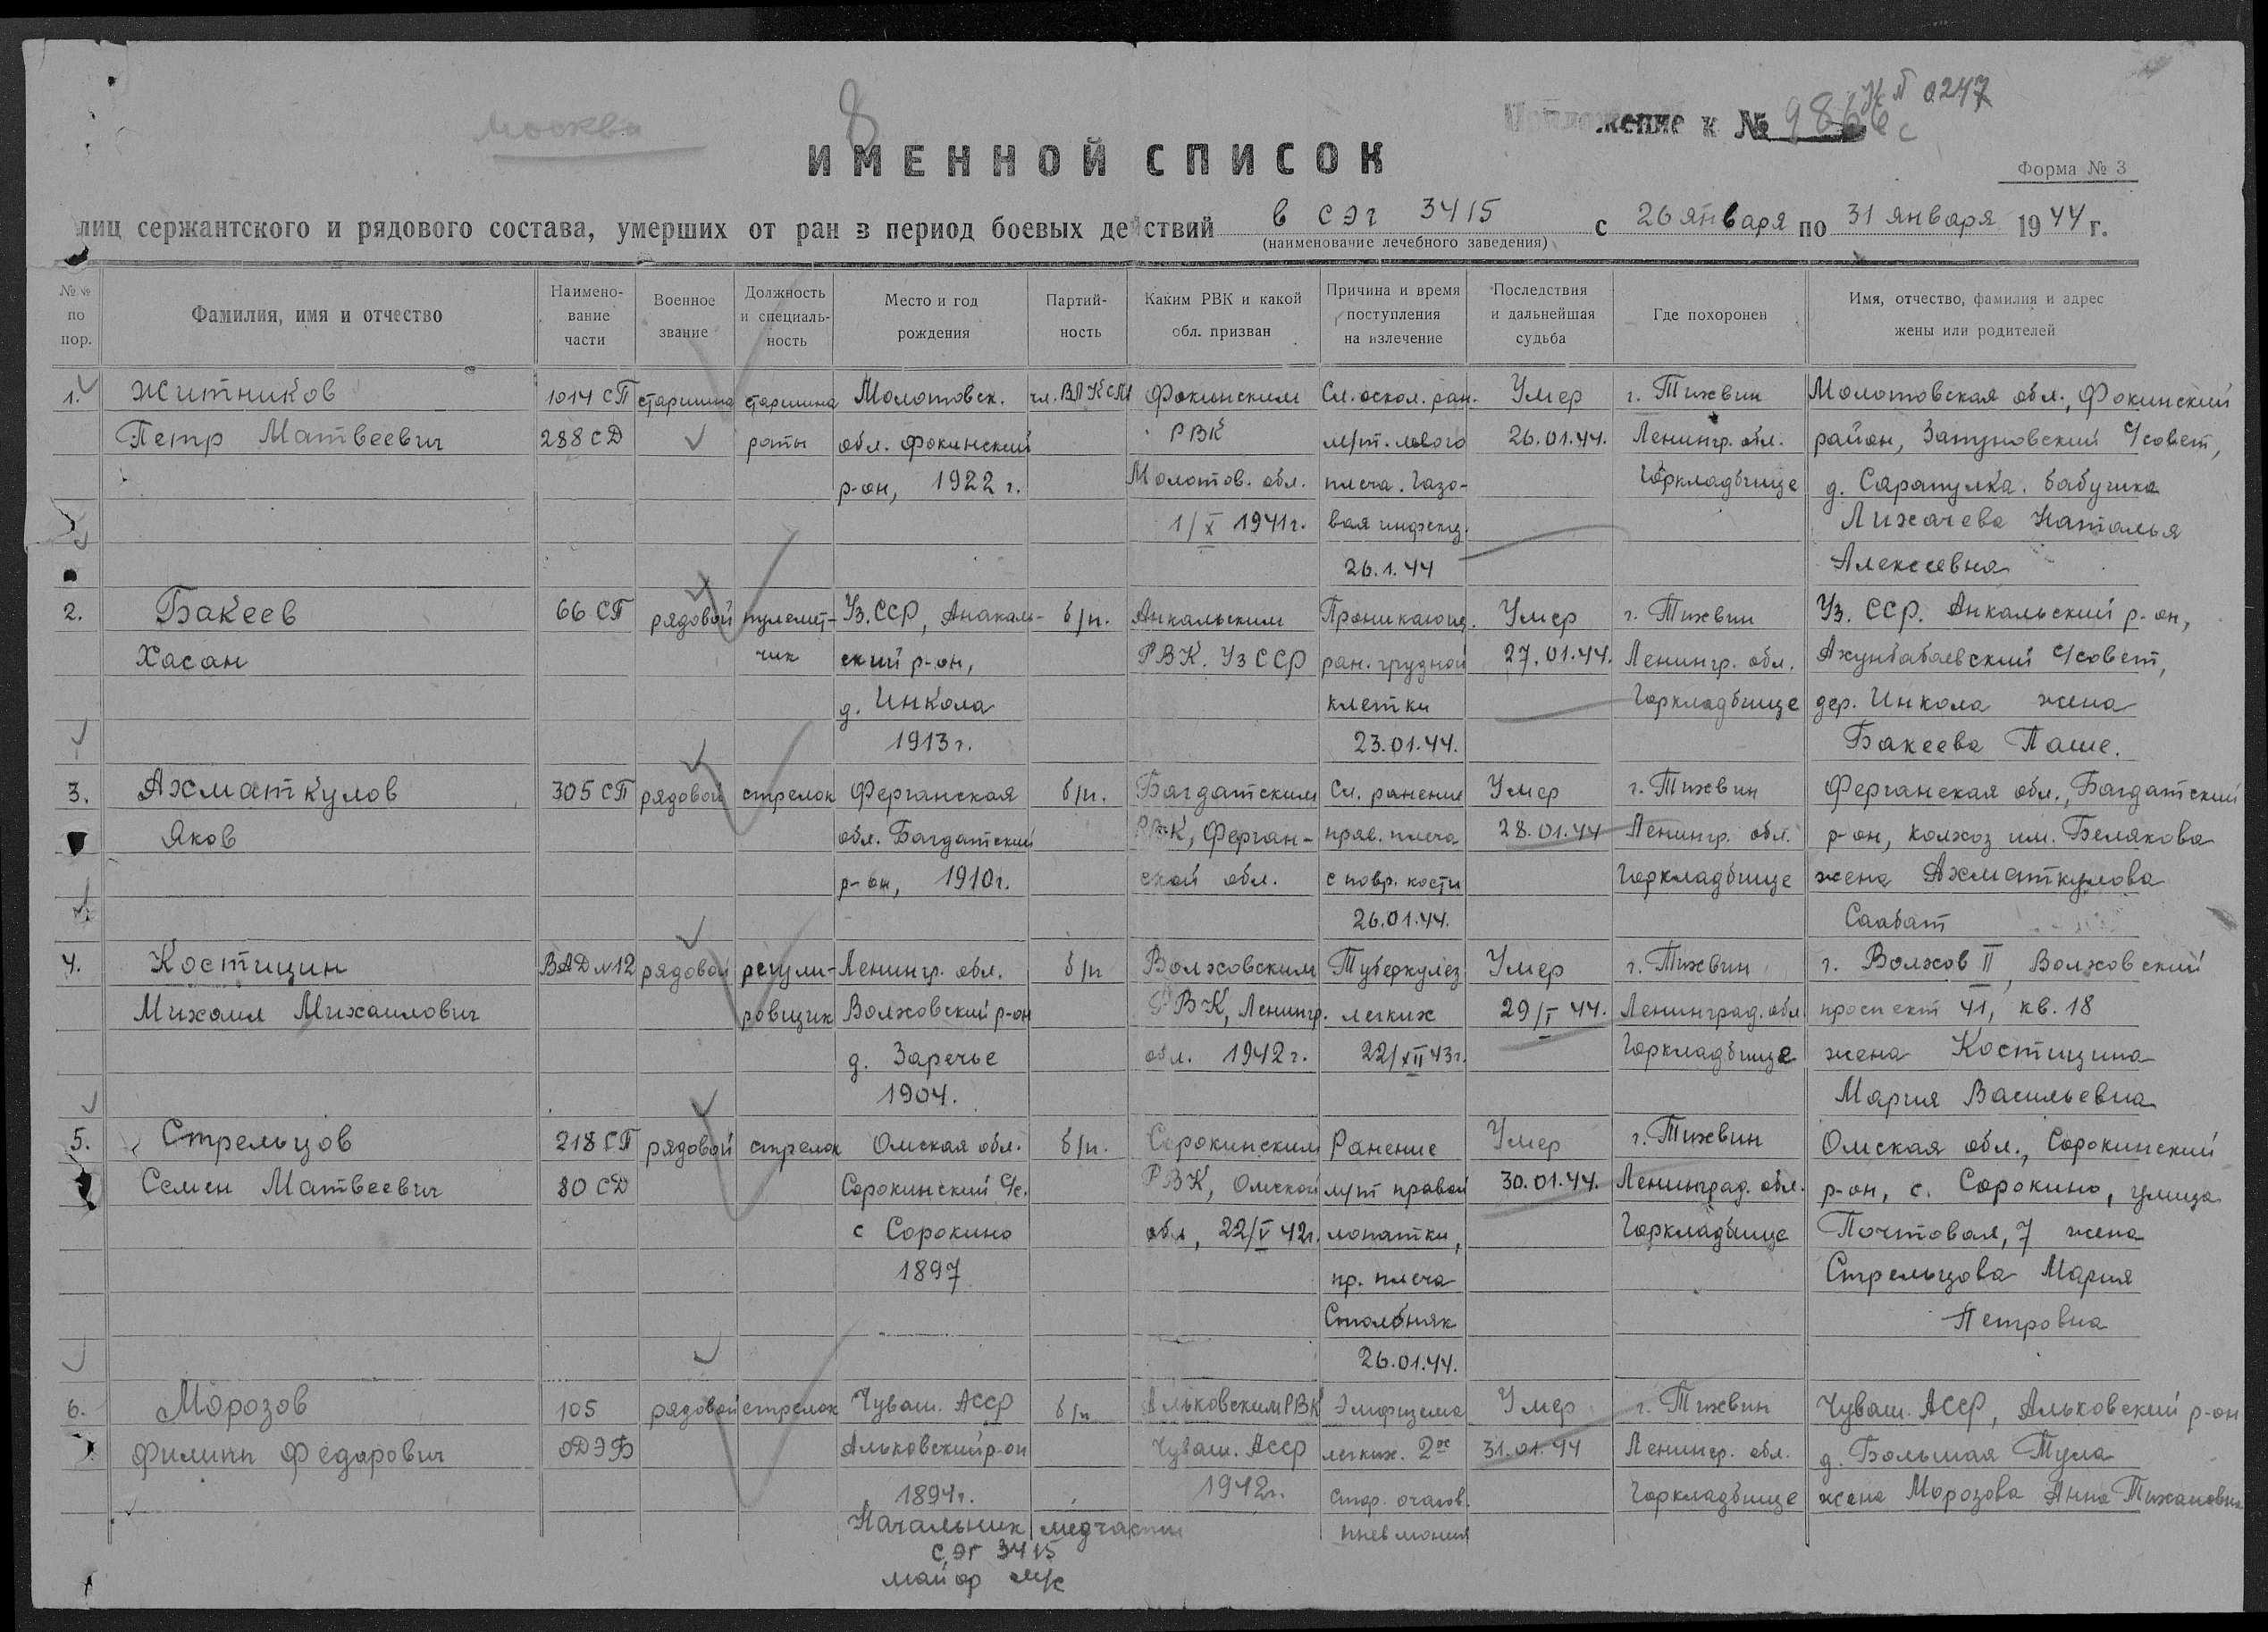 Москва
8
Приложение к № 9866с
УК № 0247
ИМЕННОЙ СПИСОК
Форма № 3
лиц сержантского и рядового состава, умерших от ран в период боевых действий в сэг 3415 с 26 января по 31 января 1944 г.
(наименование лечебного заведения)
№№ по пор.
Фамилия, имя и отчество
Наимено-
вание
части
Военное
звание
Должность
и специаль-
ность
Место и год
рождения
Партий-
ность
Каким РВК и какой
обл. призван
Причина и время
поступления
на излечение
Последствия
и дальнейшая
судьба
Где похоронен
Имя, отчество, фамилия и адрес
жены или родителей
1.
Житников
Петр Матвеевич
1014 СП
288 СД
старшина
старшина
роты
Молотовск.
обл. Фокинский
р-он, 1922 г.
чл. ВЛКСМ
Фокинским
РВК
Молотов. обл.
1/X 1941г.
Сл. оскол. ран.
м/т. левого
плеча. Газо-
вая инфекц.
26.1.44
Умер
26.01.44.
г. Тихвин
Ленингр. обл.
Горкладбище
Молотовская обл., Фокинский
район, Запуновский с/совет,
д. Сарапулка. бабушка
Лихачева Наталья
Алексеевна
2.
Бакеев
Хасан
66 СП
рядовой
пулемет-
чик
Уз. ССР, Анакаль-
ский р-он,
д. Инкола
1913г.
б/п.
Анкальским
РВК. Уз ССР
Проникающ.
ран. грудной
клетки
23.01.44.
Умер
27.01.44.
г. Тихвин
Ленингр. обл.
Горкладбище
Уз. ССР. Анкальский р-он,
Ахунбабаевский с/совет,
дер. Инкола жена
Бакеева Паше.
3.
Ахматкулов
Яков
305 СП
рядовой
стрелок
Ферганская
обл. Багдатский
р-он, 1910г.
б/п.
Багдатским
РВК, Ферган-
ской обл.
Сл. ранение
прав. плеча
с повр. кости
26.01.44.
Умер
28.01.44
г. Тихвин
Ленингр. обл.
Горкладбище
Ферганская обл., Багдатский
р-он, колхоз им. Белякова
жена Ахматкулова
Саабат
4.
Костицин
Михаил Михайлович
ВАД №12
рядовой
регули-
ровщик
Ленингр. обл.
Волховский р-он
д. Заречье
1904.
б/п
Волховским
РВК, Ленингр.
обл. 1942г.
Туберкулез
легких
22/XII 43г.
Умер
29/I 44.
г. Тихвин
Ленинград. обл
Горкладбище
г. Волхов II, Волховский
проспект 41, кв. 18
жена Костицина
Мария Васильевна
5.
Стрельцов
Семен Матвеевич
218 СП
80 СД
рядовой
стрелок
Омская обл.
Сорокинский с/с.
с Сорокино
1897
б/п.
Сорокинским
РВК, Омской
обл, 22/V 42г.
Ранение
м/т правой
лопатки,
пр. плеча
Столбняк
26.01.44.
Умер
30.01.44.
г. Тихвин
Ленинград. обл.
Горкладбище
Омская обл., Сорокинский
р-он, с. Сорокино, улица
Почтовая, 7 жена
Стрельцова Мария
Петровна
6.
Морозов
Филипп Федорович
105
ОДЭБ
рядовой
стрелок
Чуваш. АССР
Альковский р-он
1894г.
б/п
Альковским РВК
Чуваш. АССР
1942г.
Эмфизема
легких. 2ох
стор. очагов.
пневмония
Умер
31.01.44
г. Тихвин
Ленингр. обл.
Горкладбище
Чуваш. АССР, Альковский р-он
д. Большая Тула
жена Морозова Анна Тихановна
Начальник медчасти
СЭГ 3415
майор м/с